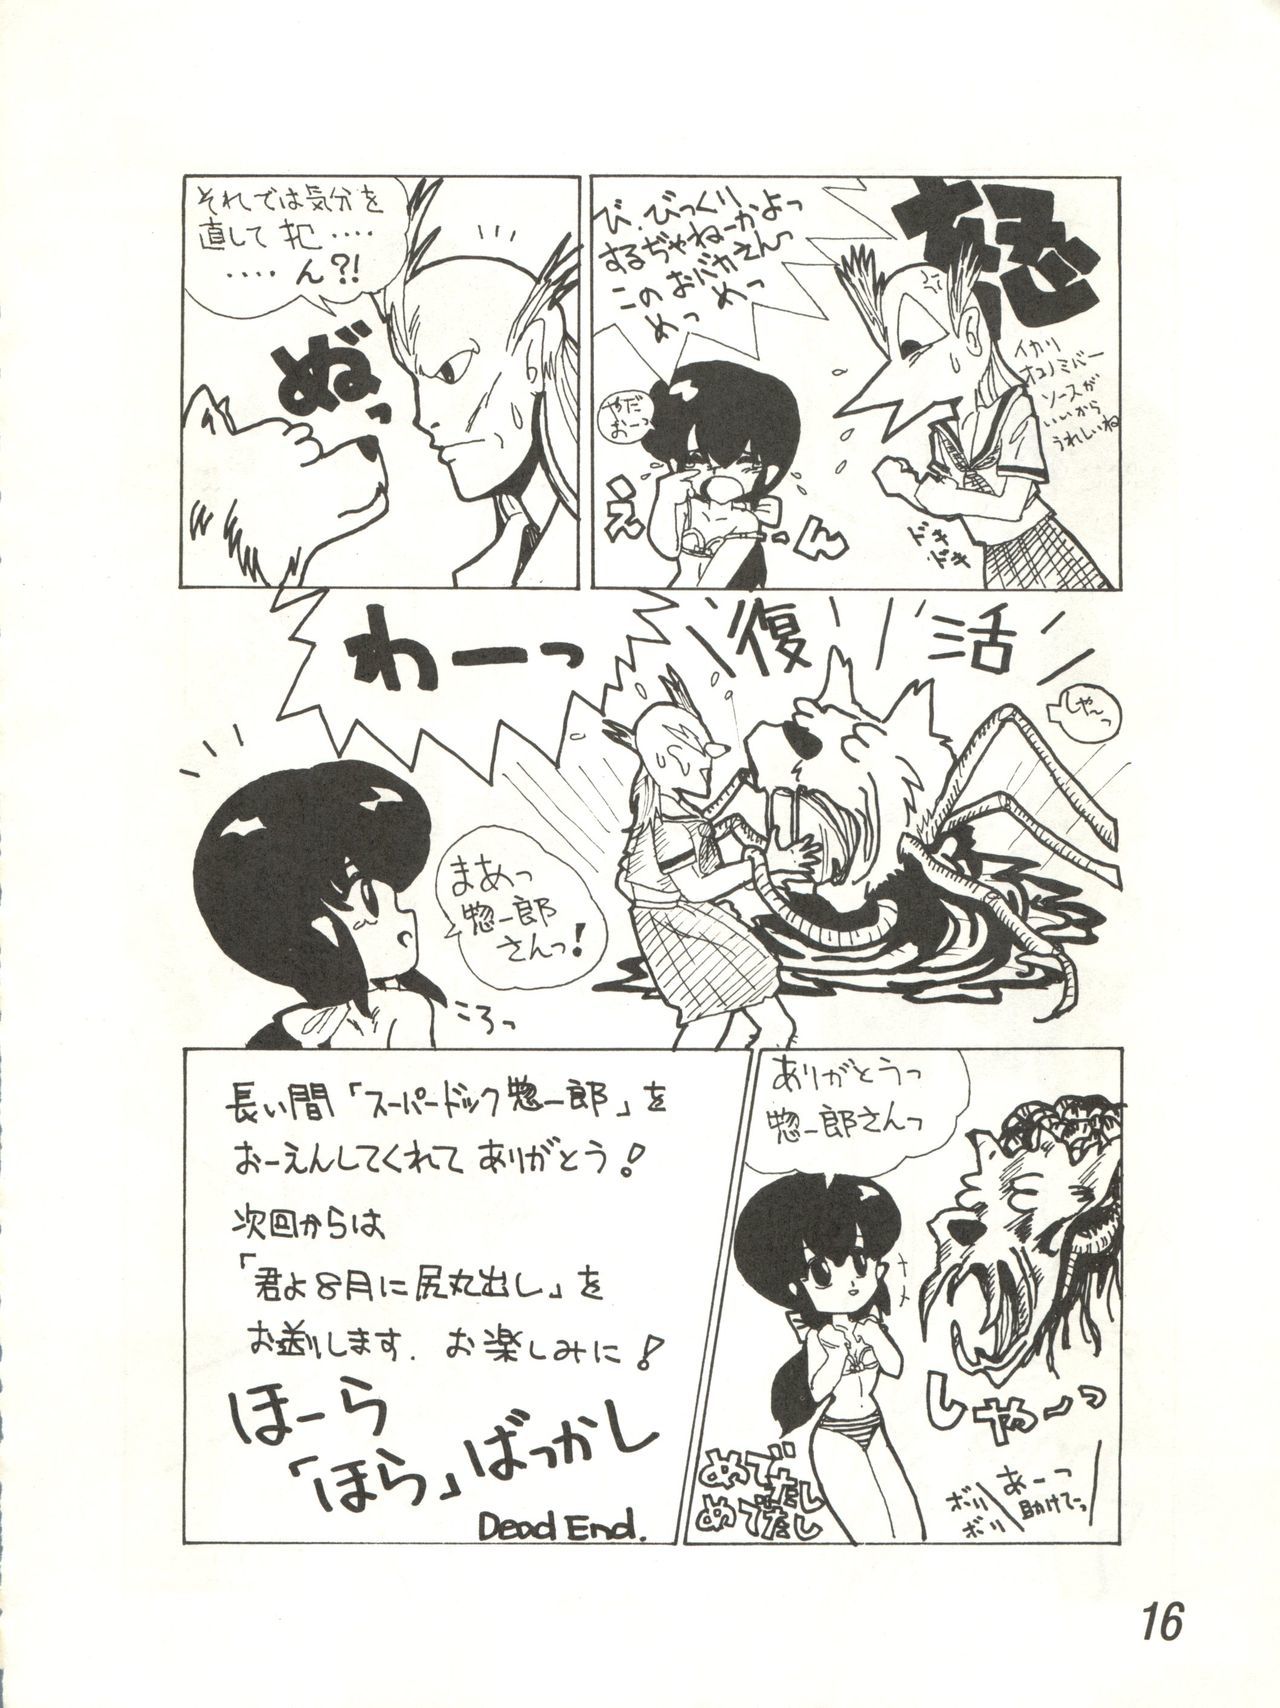 怒
び、びっくり
するぢゃねーかよっ
このおバカえんっ
めっ めっ
イカリ
オコノミバー
ソースが
いいから
うれしいね
やだ
おーっ
え
ーん
ドキ
ドキ
それでは気分を
直して 犯‥‥
‥‥ん?!
ぬっ
復活
わーっ
しゃーっ
まあっ
惣一郎
さんっ!
ころっ
ありがとうっ
惣一郎さんっ
しゃーっ
めでたし
めでたし
あーっ
助けてーっ
ボリ
ボリ
長い間「スーパードック惣一郎」を
おーえんしてくれて ありがとう!
次回からは
「君よ8月に尻丸出し」を
お送りします. お楽しみに!
ほーら
「ほら」ばっかし
Dead End.
16